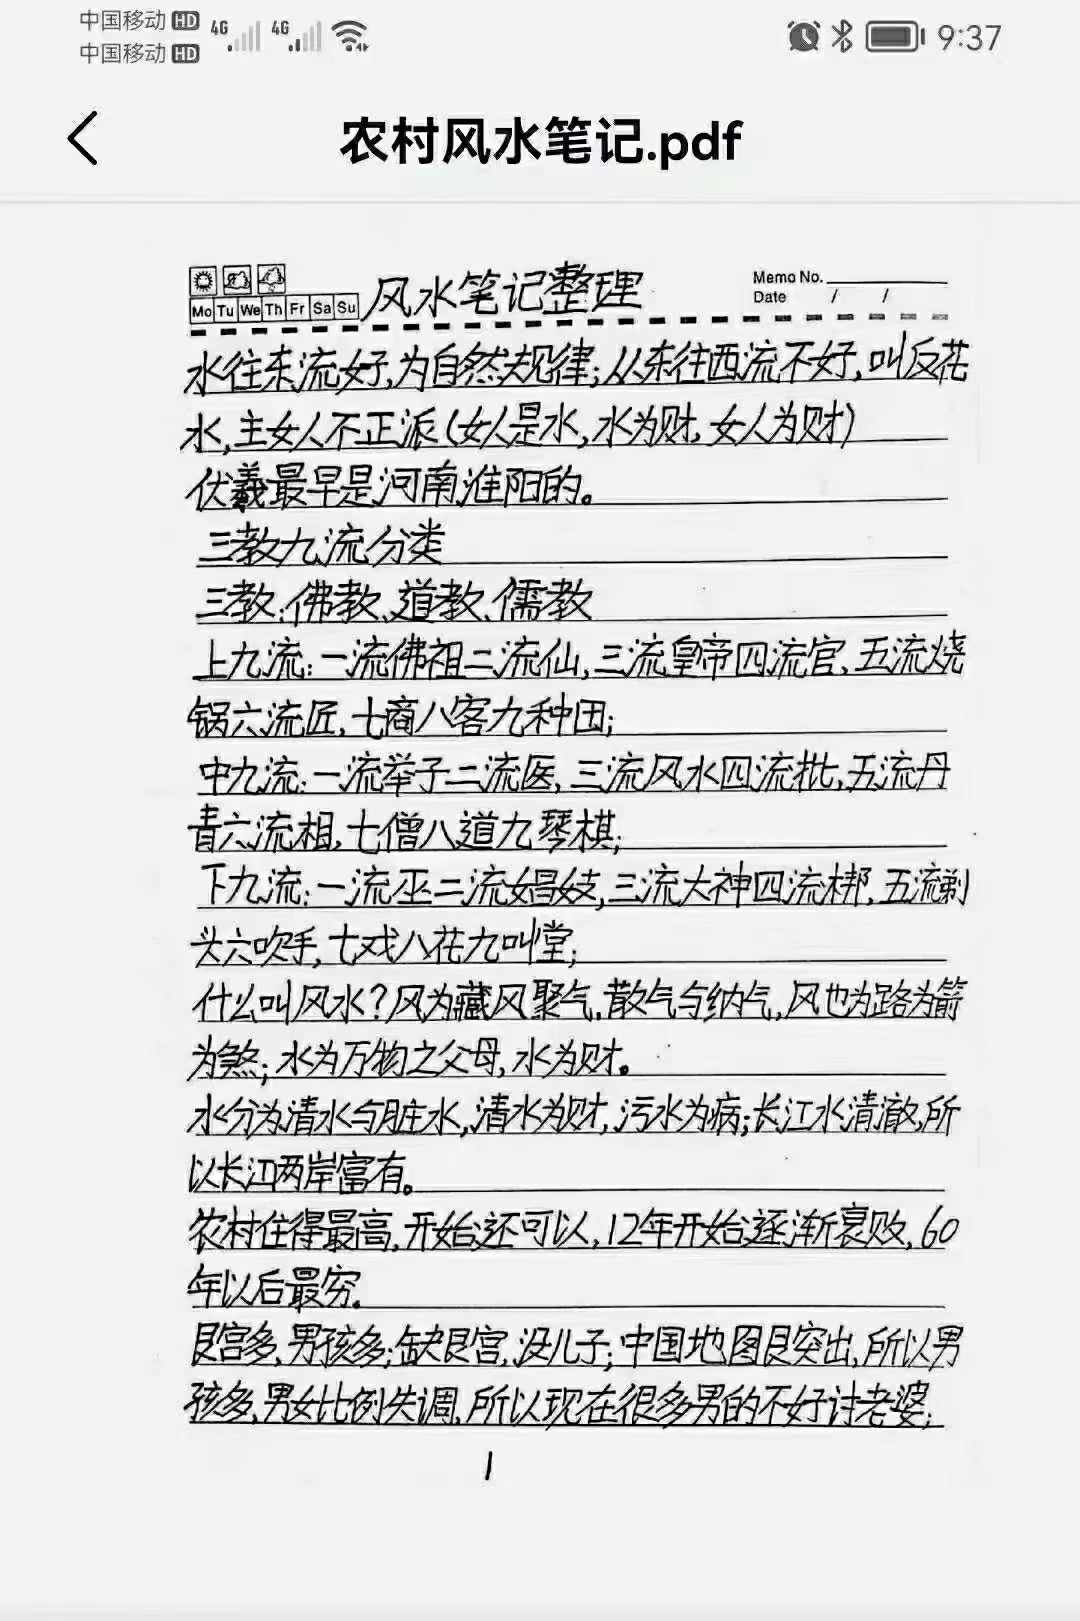 中国移动 HD 4G 4G
中国移动 HD 9:37
农村风水笔记.pdf
Mo Tu We Th Fr Sa Su 风水笔记整理 Memo No.
Date / /
水往东流好,为自然规律;从东往西流不好,叫反花
水,主女人不正派(女人是水,水为财,女人为财)
伏羲最早是河南淮阳的。
三教九流分类
三教:佛教、道教、儒教
上九流:一流佛祖二流仙,三流皇帝四流官,五流烧
锅六流匠,七商八客九种田;
中九流:一流举子二流医,三流风水四流批,五流丹
青六流相,七僧八道九琴棋;
下九流:一流巫二流娼妓,三流大神四流梆,五流剃
头六吹手,七戏八花九叫堂;
什么叫风水?风为藏风聚气,散气与纳气,风也为路为箭
为煞;水为万物之父母,水为财。
水分为清水与脏水,清水为财,污水为病;长江水清澈,所
以长江两岸富有。
农村住得最高,开始还可以,12年开始逐渐衰败,60
年以后最穷。
艮宫多,男孩多;缺艮宫,没儿子;中国地图艮突出,所以男
孩多,男女比例失调,所以现在很多男的不好讨老婆;
1